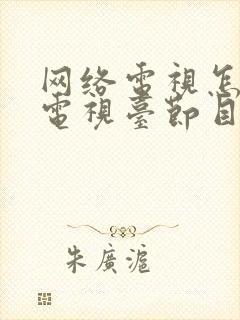 网络電視怎
電視臺節目
朱廣滬